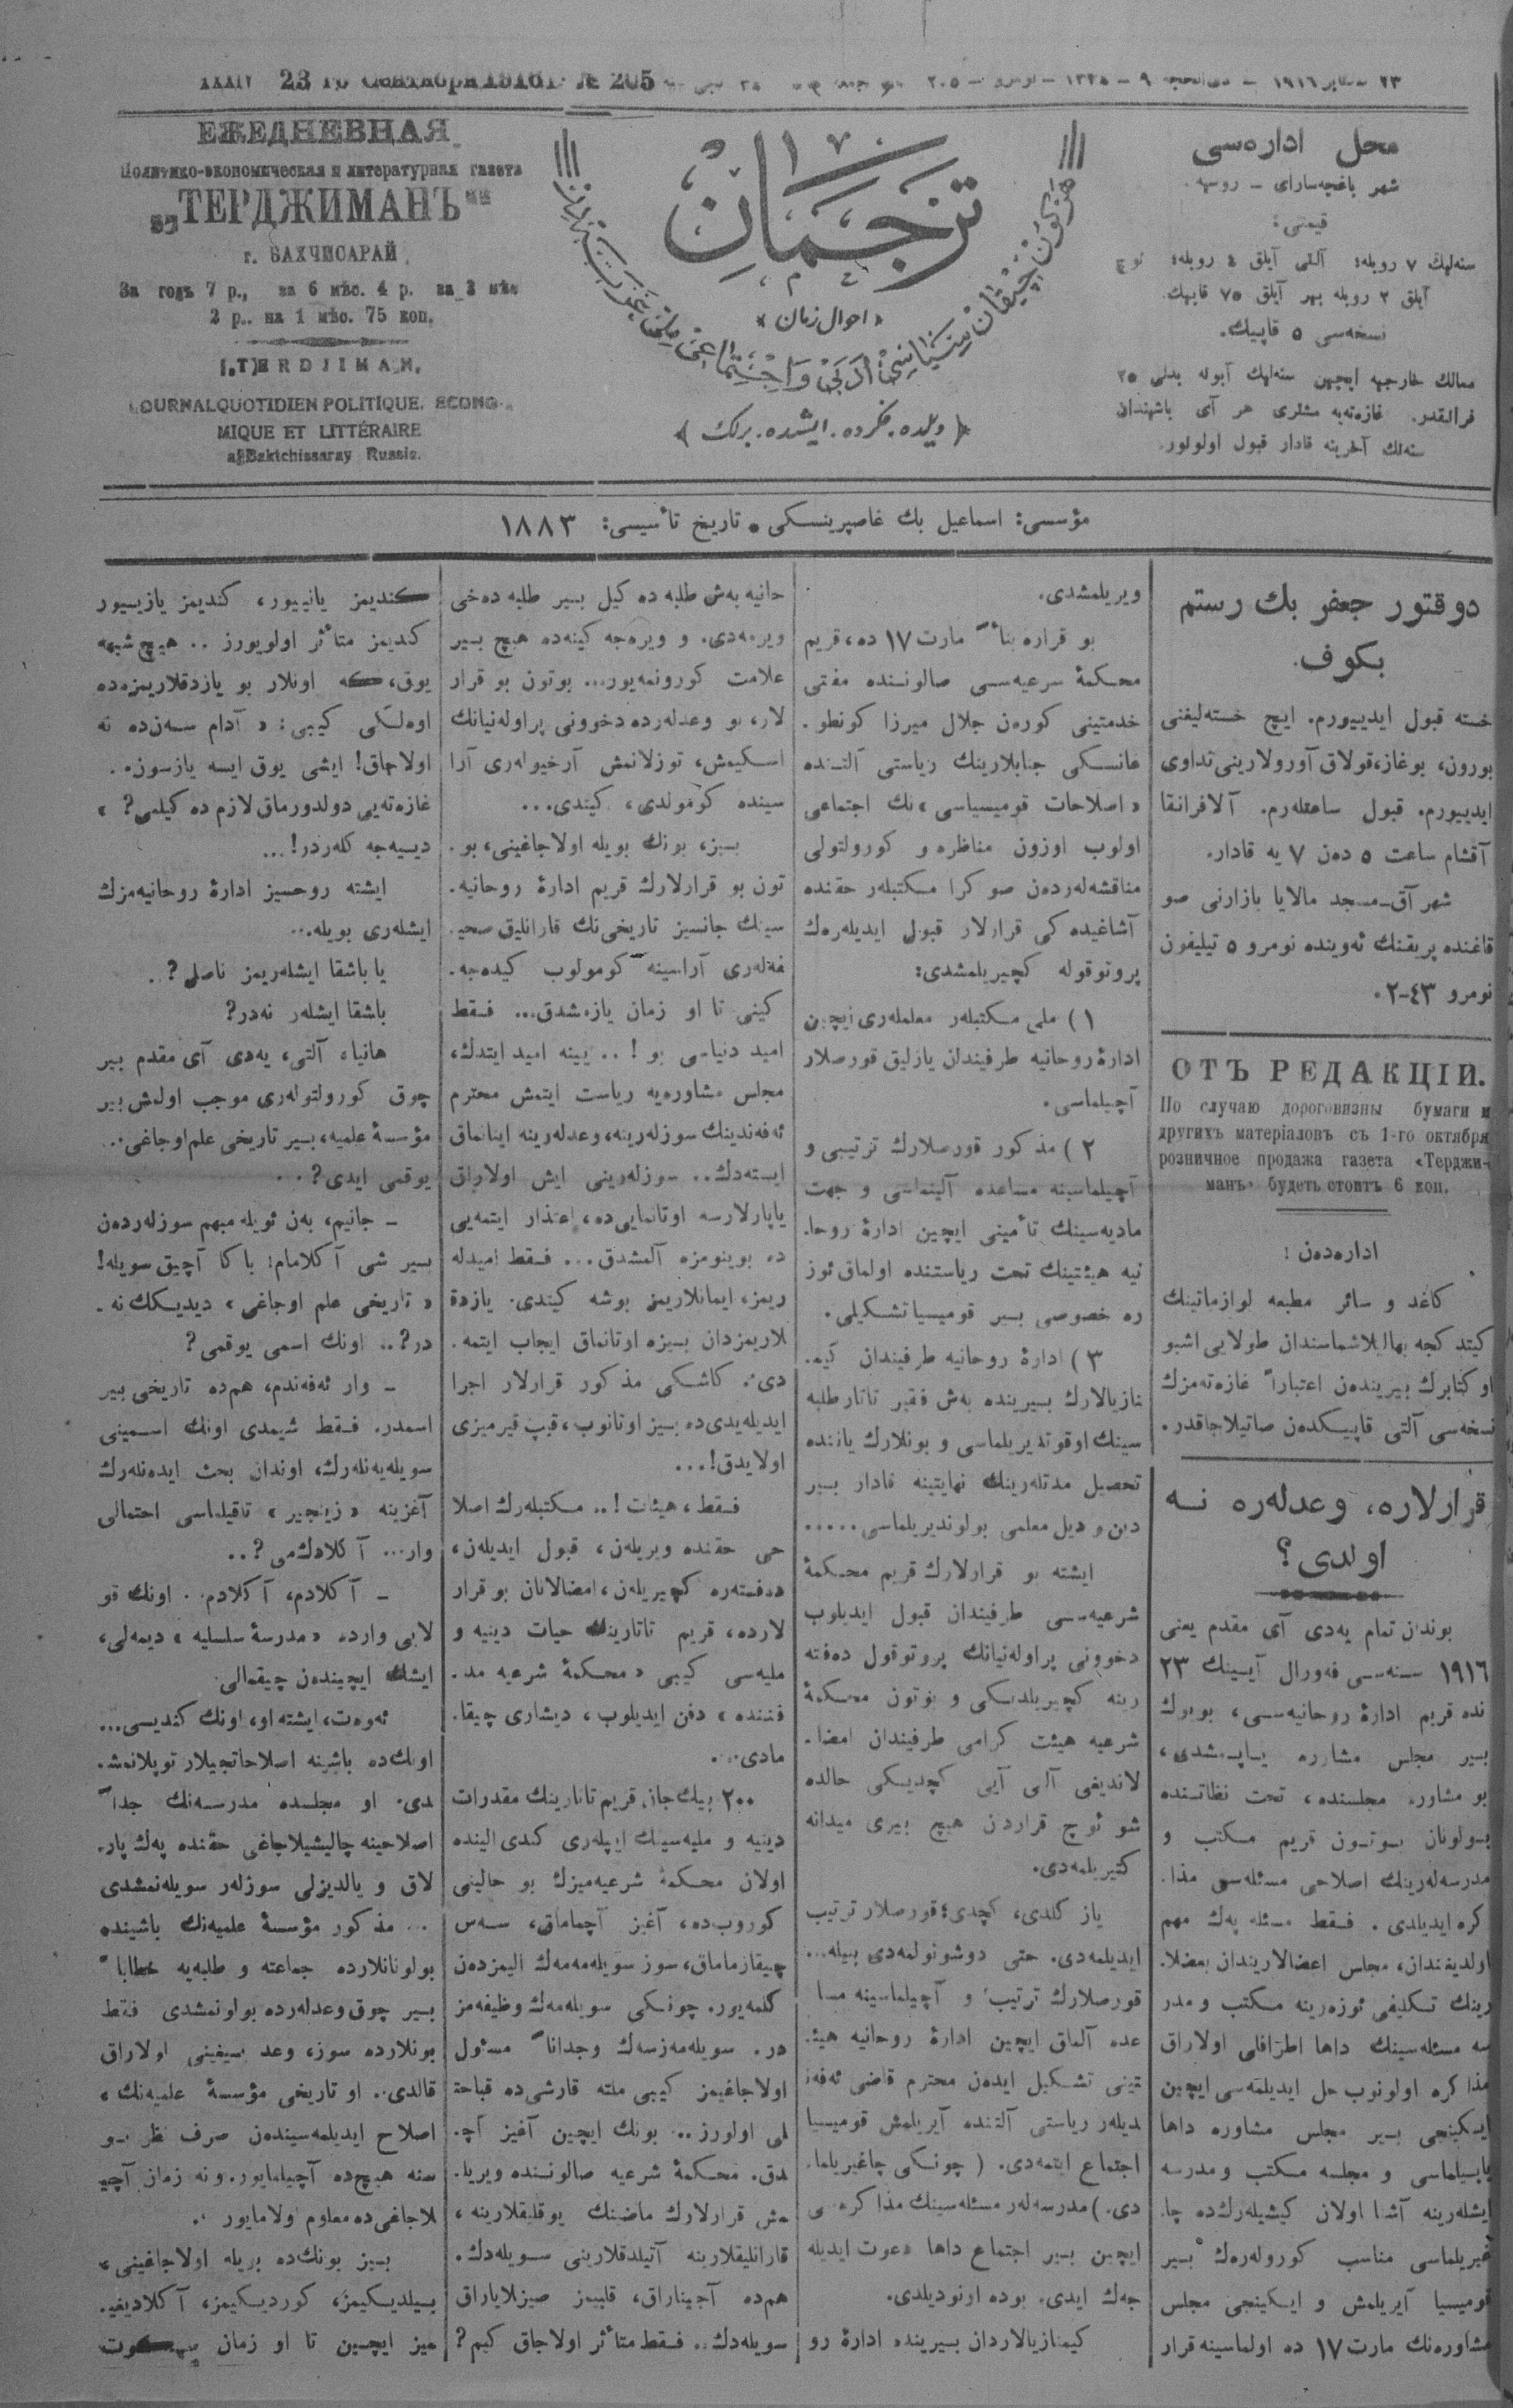 23 го Сентября 1916 г. № 205
ЕЖЕДНЕВНАЯ
Политико-экономическая и литературная газета
„ТЕРДЖИМАНЪ"
г. БАХЧИСАРАЙ
За годъ 7 р., за 6 мѣс. 4 р. за 3 мѣс
2 р.. на 1 мѣс. 75 коп.
TERDJIMAN.
JOURNAL QUOTIDIEN POLITIQUE. ECONO-
MIQUE ET LITTÉRAIRE
a Baktchissaray Russie.
ترجمان
« احوال زمان »
﴿ ديلده. فكرده. ايشده. برلك ﴾
محل اداره‌سی
شهر باغچه‌سارای – روسیه
قیمتی:
سنه‌لیك ۷ روبله؛ آلتی آیلق ٤ روبله؛ ئوچ
آیلق ۲ روبله بیر آیلق ۷۵ قاپیك.
نسخه‌سی ۵ قاپیك.
ممالك خارجیه ایچین سنه‌لیك آبونه بدلی ۲۵
فرانقدر. غازه‌ته‌یه مشتری هر آی باشیندان
سنه‌نك آخرینه قادار قبول اولونور.
مؤسسی: اسماعیل بك غاصپرینسكی • تاریخ تأسیسی: ۱۸۸۳
دوقتور جعفر بك رستم
بكوف.
خسته قبول ایدییورم. ایچ خسته‌لیغنی
بورون، بوغاز، قولاق آورولارینی تداوی
ایدییورم. قبول ساعتله‌رم. آلافرانقا
آقشام ساعت ۵ ده‌ن ۷ یه قادار.
شهر آق-مسجد مالایا بازارنی صو
قاغنده پریقنك ئه‌وینده نومرو ۵ تیلیفون
نومرو ٤۳-۲.
ОТЪ РЕДАКЦIИ.
По случаю дороговизны бумаги и
другихъ матерiаловъ съ 1-го октября
розничное продажа газета «Терджи-
манъ» будетъ стоитъ 6 коп.
اداره‌ده‌ن :
كاغد و سائر مطبعه لوازماتینك
كیتدكجه بهالیلاشماسندان طولایی اشبو
اوكتابرك بیرینده‌ن اعتباراً غازه‌ته‌مزك
نسخه‌سی آلتی قاپیكده‌ن صاتیلاجاقدر.
قرارلاره، وعدله‌ره نه
اولدی؟
بوندان تمام یه‌دی آی مقدم یعنی
۱۹۱٦ سنه‌سی فه‌ورال آیینك ۲۳
نده قریم ادارهٔ روحانیه‌سی، بویوك
بیر مجلس مشاوره یاپمشدی،
بو مشاوره مجلسنده، تحت نظارتنده
بولونان بوتون قریم مكتب و
مدرسه‌له‌رینك اصلاحی مسئله‌سی مذا.
كره ایدیلدی. فقط مسئله په‌ك مهم
اولدیغندان، مجلس اعضالاریندان بعضلا.
رینك تكلیفی ئوزه‌رینه مكتب و مدر
سه مسئله‌سینك داها اطرافلی اولاراق
مذاكره اولونوب حل ایدیلمه‌سی ایچین
ایكینجی بیر مجلس مشاوره داها
یاپیلماسی و مجلسه مكتب و مدرسه
ایشله‌رینه آشنا اولان كیشیله‌رك‌ده چا.
غیریلماسی مناسب كوروله‌ره‌ك بیر
قومیسیا آیریلمش و ایكینجی مجلس
مشاوره‌نك مارت ۱۷ ده اولماسینه قرار
ویریلمشدی.
بو قراره بنأً مارت ۱۷ ده، قریم
محكمهٔ شرعیه‌سی صالونسنده مفتی
خدمتینی كوره‌ن جلال میرزا كونطو.
غانسكی جنابلارینك ریاستی آلتنده
«اصلاحات قومیسیاسی»نك اجتماعی
اولوب اوزون مناظره و كورولتولی
مناقشه‌له‌رده‌ن صوكرا مكتبله‌ر حقنده
آشاغیده‌كی قرارلار قبول ایدیله‌ره‌ك
پروتوقوله كچیریلمشدی:
۱) ملی مكتبله‌ر معلمله‌ری ایچین
ادارهٔ روحانیه طرفیندان یازلیق قورصلار
آچیلماسی.
۲) مذكور قورصلارك ترتیبی و
آچیلماسینه مساعده آلینماسی و جهت
مادیه‌سینك تأمینی ایچین ادارهٔ روحا.
نیه هیئتینك تحت ریاستنده اولماق ئوز
ره خصوصی بیر قومیسیا تشكیلی.
۳) ادارهٔ روحانیه طرفیندان كیم.
نازیالارك بیرینده به‌ش فقیر تاتار طلبه
سینك اوقوتدیریلماسی و بونلارك یاننده
تحصیل مدتله‌رینك نهایتینه قادار بیر
دین و دیل معلمی بولوندیریلماسی.....
ایشته بو قرارلارك قریم محكمهٔ
شرعیه‌سی طرفیندان قبول ایدیلوب
دخوونی پراوله‌نیانك پروتوقول ده‌فته
رینه كچیریلدیكی و بوتون محكمهٔ
شرعیه هیئت كرامی طرفیندان امضا.
لاندیغی آلتی آیی كچدیكی حالده
شو ئوچ قراردن هیچ بیری میدانه
كتیریلمه‌دی.
یاز كلدی، كچدی؛ قورصلار ترتیب
ایدیلمه‌دی. حتی دوشونولمه‌دی بیله...
قورصلارك ترتیب و آچیلماسینه مسا
عده آلماق ایچین ادارهٔ روحانیه هیئ.
تینی تشكیل ایده‌ن محترم قاضی ئه‌فه‌ن
دیله‌ر ریاستی آلتنده آیریلمش قومیسیا
اجتماع ایتمه‌دی. (چونكی چاغیریلما.
دی.) مدرسه‌له‌ر مسئله‌سینك مذاكره‌سی
ایچین بیر اجتماع داها دعوت ایدیله
جه‌ك ایدی. بوده اونودیلدی.
كیمنازیالاردان بیرینده ادارهٔ رو
حانیه به‌ش طلبه ده‌كیل بیر طلبه ده‌خی
ویرمه‌دی. و ویره‌جه‌كینه‌ده هیچ بیر
علامت كورونمه‌یور... بوتون بو قرار
لار، بو وعدله‌رده دخوونی پراوله‌نیانك
اسكیمش، توزلانمش آرخیوله‌ری آرا
سینده كومولدی، كیتدی...
بیز، بونك بویله اولاجاغینی، بو.
تون بو قرارلارك قریم ادارهٔ روحانیه.
سینك جانسیز تاریخی‌نك قارانلیق صحی.
فه‌له‌ری آراسینه كومولوب كیده‌جه.
كینی تا او زمان یازمشدق... فقط
امید دنیاسی بو !.. یینه امید ایتدك،
مجلس مشاوره‌یه ریاست ایتمش محترم
ئه‌فه‌ندینك سوزله‌رینه، وعدله‌رینه اینانماق
ایسته‌دك.. سوزله‌رینی ایش اولاراق
یاپارلارسه اوتانمایی‌ده، اعتذار ایتمه‌یی
ده بوینومزه آلمشدق... فقط امیدله
ریمز، ایمانلاریمز بوشه كیتدی. یازدق
لاریمزدان بیزه اوتانماق ایجاب ایتمه.
دی. كاشكی مذكور قرارلار اجرا
ایدیله‌یدی‌ده بیز اوتانوب، قیپ قیرمیزی
اولایدق!...
فقط، هیئات!.. مكتبله‌رك اصلا
حی حقنده ویریله‌ن، قبول ایدیله‌ن،
ده‌فته‌ره كچیریله‌ن، امضالانان بو قرار
لارده، قریم تاتارینك حیات دینیه و
ملیه‌سی كیبی «محكمهٔ شرعیه مد.
فننده» دفن ایدیلوب، دیشاری چیقا.
مادی...
۲۰۰ بیك جان، قریم تاتارینك مقدرات
دینیه و ملیه‌سینك ایپله‌ری كندی الینده
اولان محكمهٔ شرعیه‌میزك بو حالینی
كوروب‌ده، آغیز آچماماق، سه‌س
چیقارماماق، سوز سویله‌مه‌مه‌ك الیمزده‌ن
كلمه‌یور. چونكی سویله‌مه‌ك وظیفه‌مز
در. سویله‌مه‌زسه‌ك وجداناً مسئول
اولاجاغیمز كیبی ملته قارشی‌ده قباحت
لی اولورز.. بونك ایچین آغیز آچ.
دق. محكمهٔ شرعیه صالونسنده ویریل.
مش قرارلارك ماضینك یوقلیقلارینه،
قارانلیقلارینه آتیلدقلارینی سویله‌دك.
هم‌ده آجیناراق، قلبیمز صیزلایاراق
سویله‌دك.. فقط متأثر اولاجاق كیم؟
كندیمز یانییور، كندیمز یازییور
كندیمز متأثر اولویورز.. هیچ شبهه
یوق، كه اونلار بو یازدقلاریمزه‌ده
اوه‌لكی كیبی: «آدام سه‌ن‌ده نه
اولاجاق! ایشی یوق ایسه یازسون.
غازه‌ته‌یی دولدورماق لازم ده‌كیلمی؟»
دییه‌جه‌كله‌ردر!...
ایشته روحسیز ادارهٔ روحانیه‌مزك
ایشله‌ری بویله...
یا باشقا ایشله‌ریمز ناصل؟..
باشقا ایشله‌ر نه‌در؟
هانیا، آلتی، یه‌دی آی مقدم بیر
چوق كورولتوله‌ری موجب اولمش بیر
مؤسسهٔ علمیه، بیر تاریخی علم اوجاغی..
یوقمی ایدی؟...
– جانیم، به‌ن ئویله مبهم سوزله‌رده‌ن
بیر شی آكلامام؛ باكا آچیق سویله!
«تاریخی علم اوجاغی» دیدیكك نه.
در؟.. اونك اسمی یوقمی؟
– وار ئه‌فه‌ندم، هم‌ده تاریخی بیر
اسمدر. فقط شیمدی اونك اسمینی
سویله‌یه‌نله‌رك، اوندان بحث ایده‌نله‌رك
آغزینه «زینجیر» تاقیلماسی احتمالی
وار... آكلادك‌می؟..
– آكلادم، آكلادم.. اونك قو
لایی وارده «مدرسهٔ سلسلیه» دیمه‌لی،
ایشك ایچینده‌ن چیقمالی.
ئه‌وه‌ت، ایشته او، اونك كندیسی...
اونك‌ده باشینه اصلاحاتجیلار توپلانمش.
دی. او مجلسده مدرسه‌نك جداً
اصلاحینه چالیشیلاجاغی حقنده په‌ك پار.
لاق و یالدیزلی سوزله‌ر سویله‌نمشدی
... مذكور مؤسسهٔ علمیه‌نك باشینده
بولونانلارده جماعته و طلبه‌یه خطاباً
بیر چوق وعدله‌رده بولونمشدی فقط
بونلارده سوز، وعد ییغینی اولاراق
قالدی.. او تاریخی مؤسسهٔ علمیه‌نك،
اصلاح ایدیلمه‌سینده‌ن صرف نظر بو
سنه هیچ‌ده آچیلمایور. و نه زمان آچی
لاجاغی‌ده معلوم اولامایور..
بیز بونك‌ده بویله اولاجاغینی،
بیلدیكیمز، كوردیكیمز، آكلادیغی.
میز ایچین تا او زمان سكوت